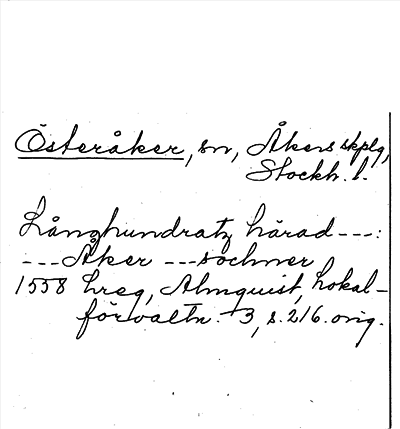 Österåker, sn, Åkers skplg,
Stockh. l.
Långhundratz härad ---:
--- Åker --- sochner
1558 hreg, Almquist, Lokal-
förvaltn. 3, s. 216. orig.